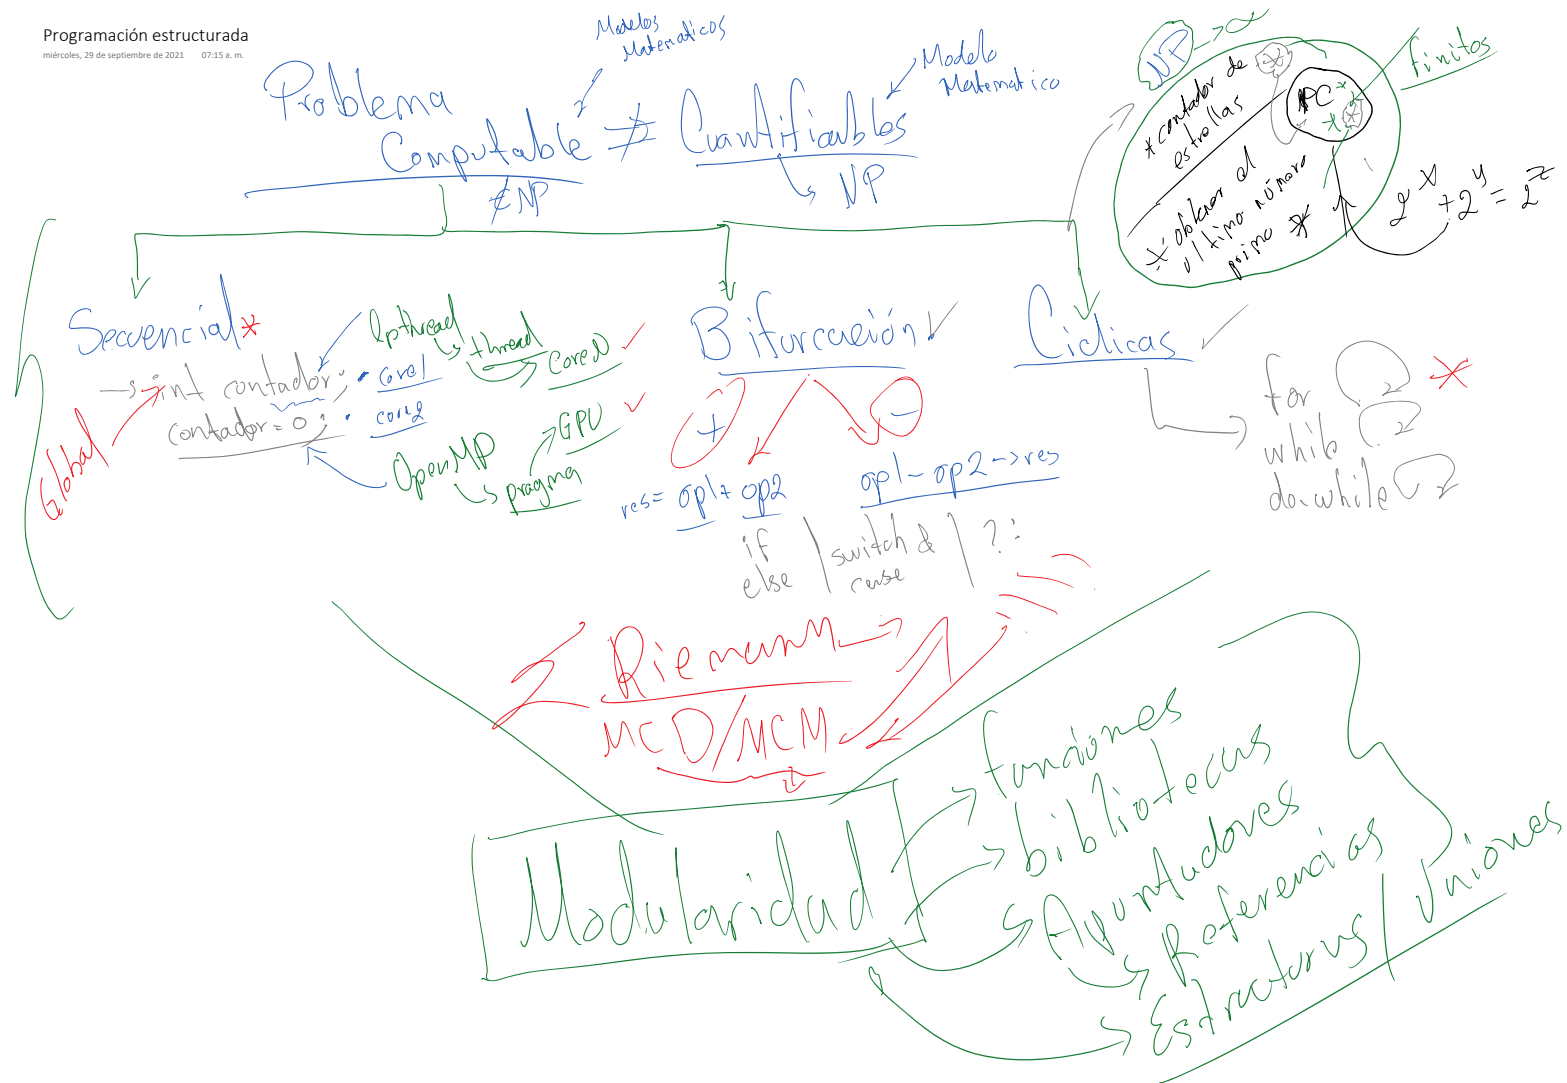 Programación estructurada
miércoles, 29 de septiembre de 2021 07:15 a. m.
Modelos
Matematicos
Modelo
Matematico
Problema
Computable ≠ Cuantificables
∉ NP
NP
NP → ∝
finitos
* contador de
estrellas
PC
* obtener el
último número
primo *
2^x + 2^y = 2^z
Secuencial *
→ int contador;
contador = 0;
Global
• core1
• core2
lpthread
thread
CoreN ✓
OpenMP
pragma
GPU ✓
Bifurcación ✓
+
−
res = op1 + op2
op1 − op2 → res
if
else
switch &
case
? :
Cíclicas ✓
for
while
do-while
Riemann
MCD/MCM
Modularidad
funciones
bibliotecas
Apuntadores
Referencias
Estructuras / Uniones